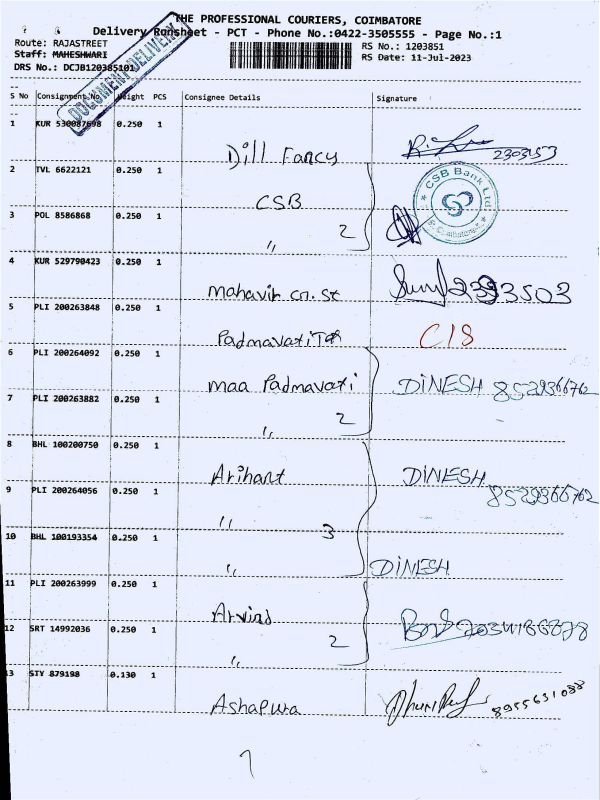 THE PROFESSIONAL COURIERS, COIMBATORE
Delivery Runsheet - PCT - Phone No.:0422-3505555 - Page No.:1
Route: RAJASTREET
Staff: MAHESHWARI
DRS No.: DCJB120385101
RS No.: 1203851
RS Date: 11-Jul-2023
DOCUMENT DELIVERY
S No Consignment No Weight PCS Consignee Details Signature
1 KUR 530087698 0.250 1 Dill Fancy 2303153
2 TVL 6622121 0.250 1 CSB
CSB Bank Ltd
Coimbatore
3 POL 8586868 0.250 1 " 2
4 KUR 529790423 0.250 1 mahavir cn. st 2393503
5 PLI 200263848 0.250 1 Padmavati CIS
6 PLI 200264092 0.250 1 maa Padmavati DINESH 8529366762
7 PLI 200263882 0.250 1 " 2
8 BHL 100200750 0.250 1 Arihant DINESH
8529366762
9 PLI 200264056 0.250 1 " 3
10 BHL 100193354 0.250 1 " DINESH
11 PLI 200263999 0.250 1 Arvind
12 SRT 14992036 0.250 1 " 2
13 STY 879198 0.130 1 Ashapura 8955631088